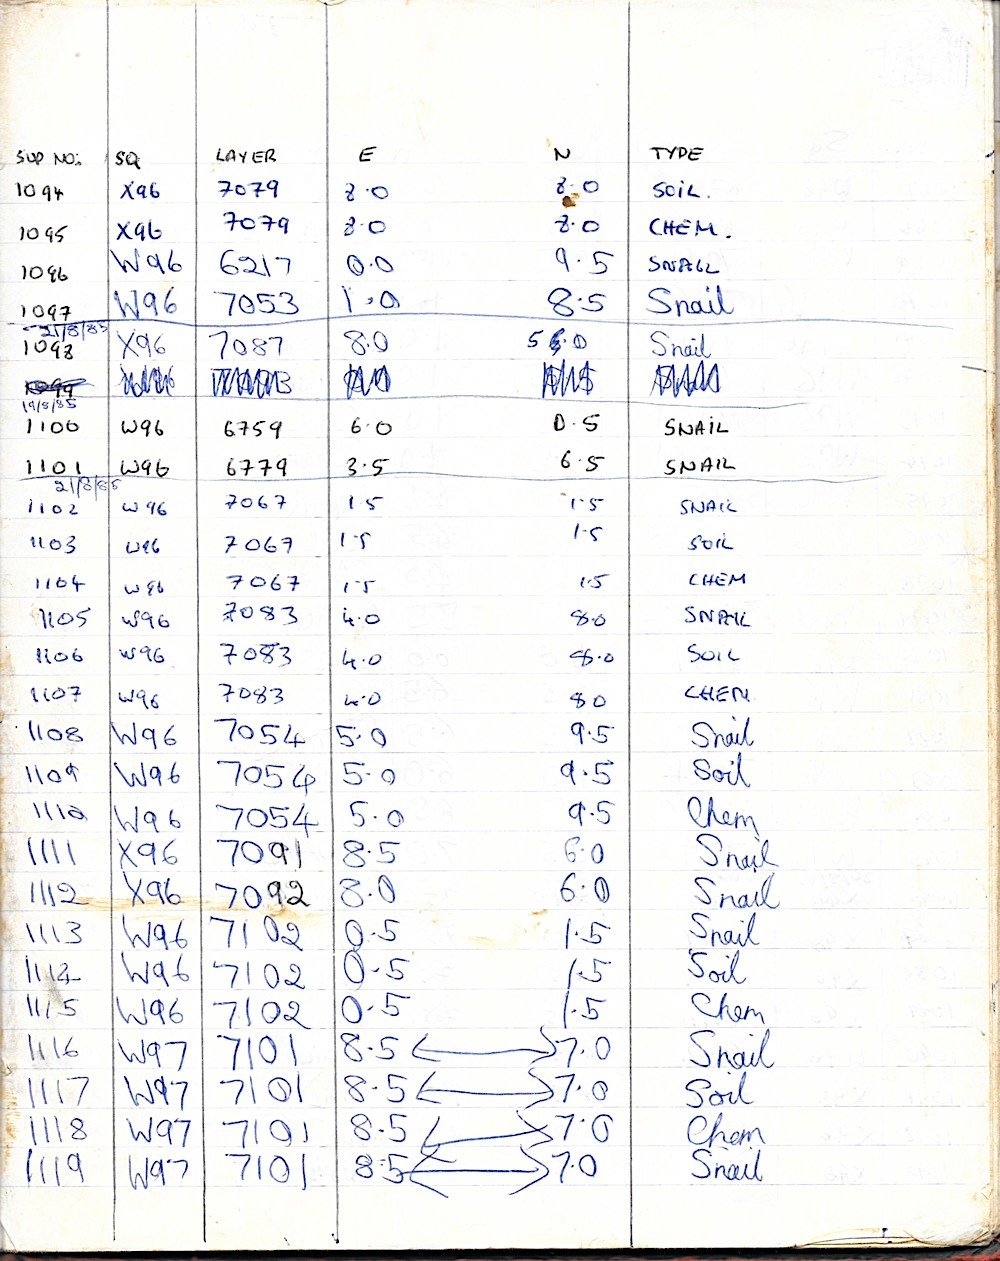 SUP NO: SQ LAYER E N TYPE
1094 X96 7079 8.0 8.0 SOIL.
1095 X96 7079 8.0 8.0 CHEM.
1096 W96 6217 0.0 9.5 SNAIL
1097 W96 7053 1.0 8.5 Snail
21/8/85
1098 X96 7087 8.0 6.0 Snail
1099
19/8/85
1100 W96 6759 6.0 0.5 SNAIL
1101 W96 6779 3.5 6.5 SNAIL
21/8/85
1102 W96 7067 1.5 1.5 SNAIL
1103 W96 7067 1.5 1.5 SOIL
1104 W96 7067 1.5 1.5 CHEM
1105 W96 7083 4.0 8.0 SNAIL
1106 W96 7083 4.0 8.0 SOIL
1107 W96 7083 4.0 8.0 CHEM
1108 W96 7054 5.0 9.5 Snail
1109 W96 7054 5.0 9.5 Soil
1110 W96 7054 5.0 9.5 Chem
1111 X96 7091 8.5 6.0 Snail
1112 X96 7092 8.0 6.0 Snail
1113 W96 7102 0.5 1.5 Snail
1114 W96 7102 0.5 1.5 Soil
1115 W96 7102 0.5 1.5 Chem
1116 W97 7101 8.5 7.0 Snail
1117 W97 7101 8.5 7.0 Soil
1118 W97 7101 8.5 7.0 Chem
1119 W97 7101 8.5 7.0 Snail